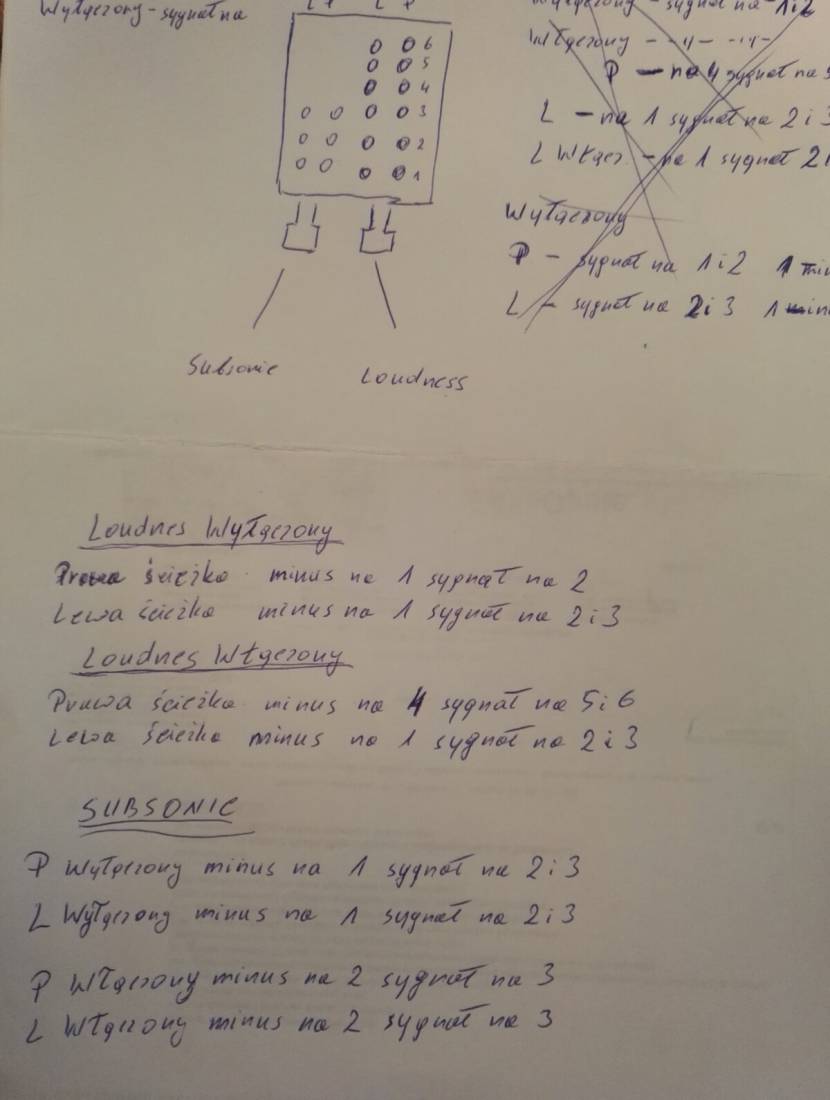 Wyłączony - sygnał na
L P
6
5
4
3
2
1
Subsonic
Loudness
Wyłączony - sygnał na 1i2
Włączony - -"- -"-
P - na 4 sygnał na 5
L - na 1 sygnał na 2 i 3
L Włącz. - na 1 sygnał 2i
Wyłączony
P - sygnał na 1i2 1 min
L - sygnał na 2i3 1 min
Loudnes Wyłączony
Prawa ścieżka minus na 1 sygnał na 2
Lewa ścieżka minus na 1 sygnał na 2i3
Loudnes Włączony
Prawa ścieżka minus na 4 sygnał na 5i6
Lewa ścieżka minus na 1 sygnał na 2i3
SUBSONIC
P Wyłączony minus na 1 sygnał na 2i3
L Wyłączony minus na 1 sygnał na 2i3
P Włączony minus na 2 sygnał na 3
L Włączony minus na 2 sygnał na 3